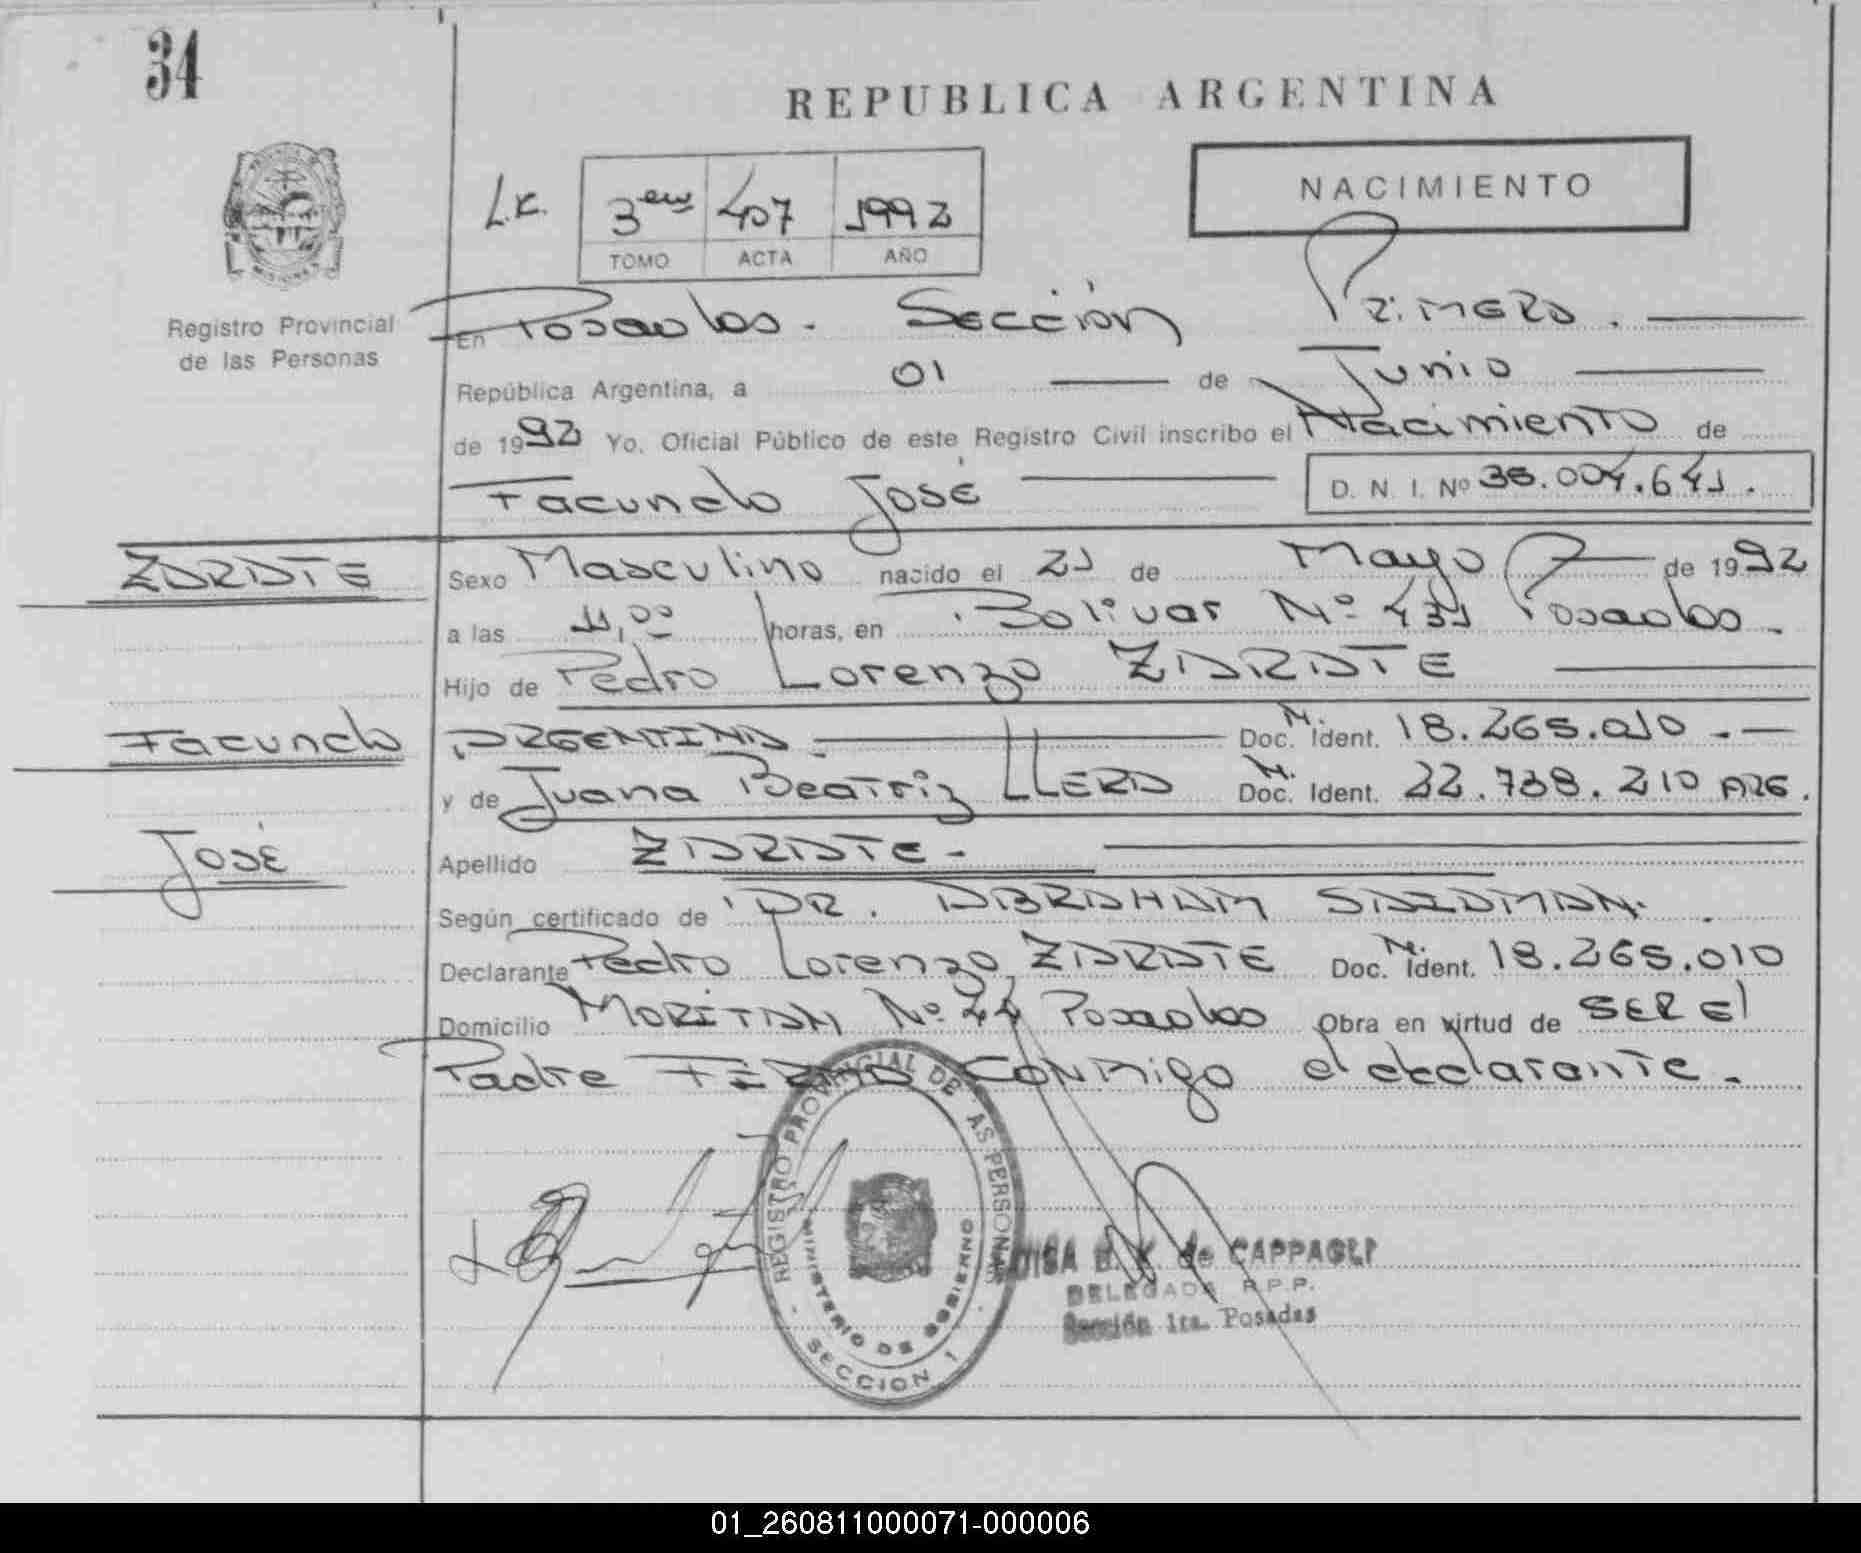 34
REPUBLICA ARGENTINA
NACIMIENTO
L.K. 3ero 407 1992
TOMO ACTA AÑO
MISIONES
Registro Provincial
de las Personas
En Posadas. Sección Primera.
República Argentina, a 01 de Junio
de 1992 Yo, Oficial Público de este Registro Civil inscribo el Nacimiento de
Facundo José D. N. I. Nº .004.641.
ZARATE Sexo Masculino nacido el 21 de Mayo de 1992
a las 11,00 horas, en Bolivar Nº 431 Posadas.
Hijo de Pedro Lorenzo ZARATE
Facundo ARGENTINA Doc. N. Ident. 18.265.010.-
y de Juana Beatriz LLERA Doc. N. Ident. 22.738.210 ARG.
José Apellido ZARATE-
Según certificado de DR. ABRAHAM SAIDMAN.
Declarante Pedro Lorenzo ZARATE Doc. N. Ident. 18.265.010
Domicilio Nº 44 Posadas Obra en virtud de SER El
Padre FIRMA CONMigo el declarante.
REGISTRO PROVINCIAL DE LAS PERSONAS
MINISTERIO DE GOBIERNO
SECCION 1
de CAPPAGLI
DELEGADA R.P.P.
Sección 1ra. Posadas
01_260811000071-000006